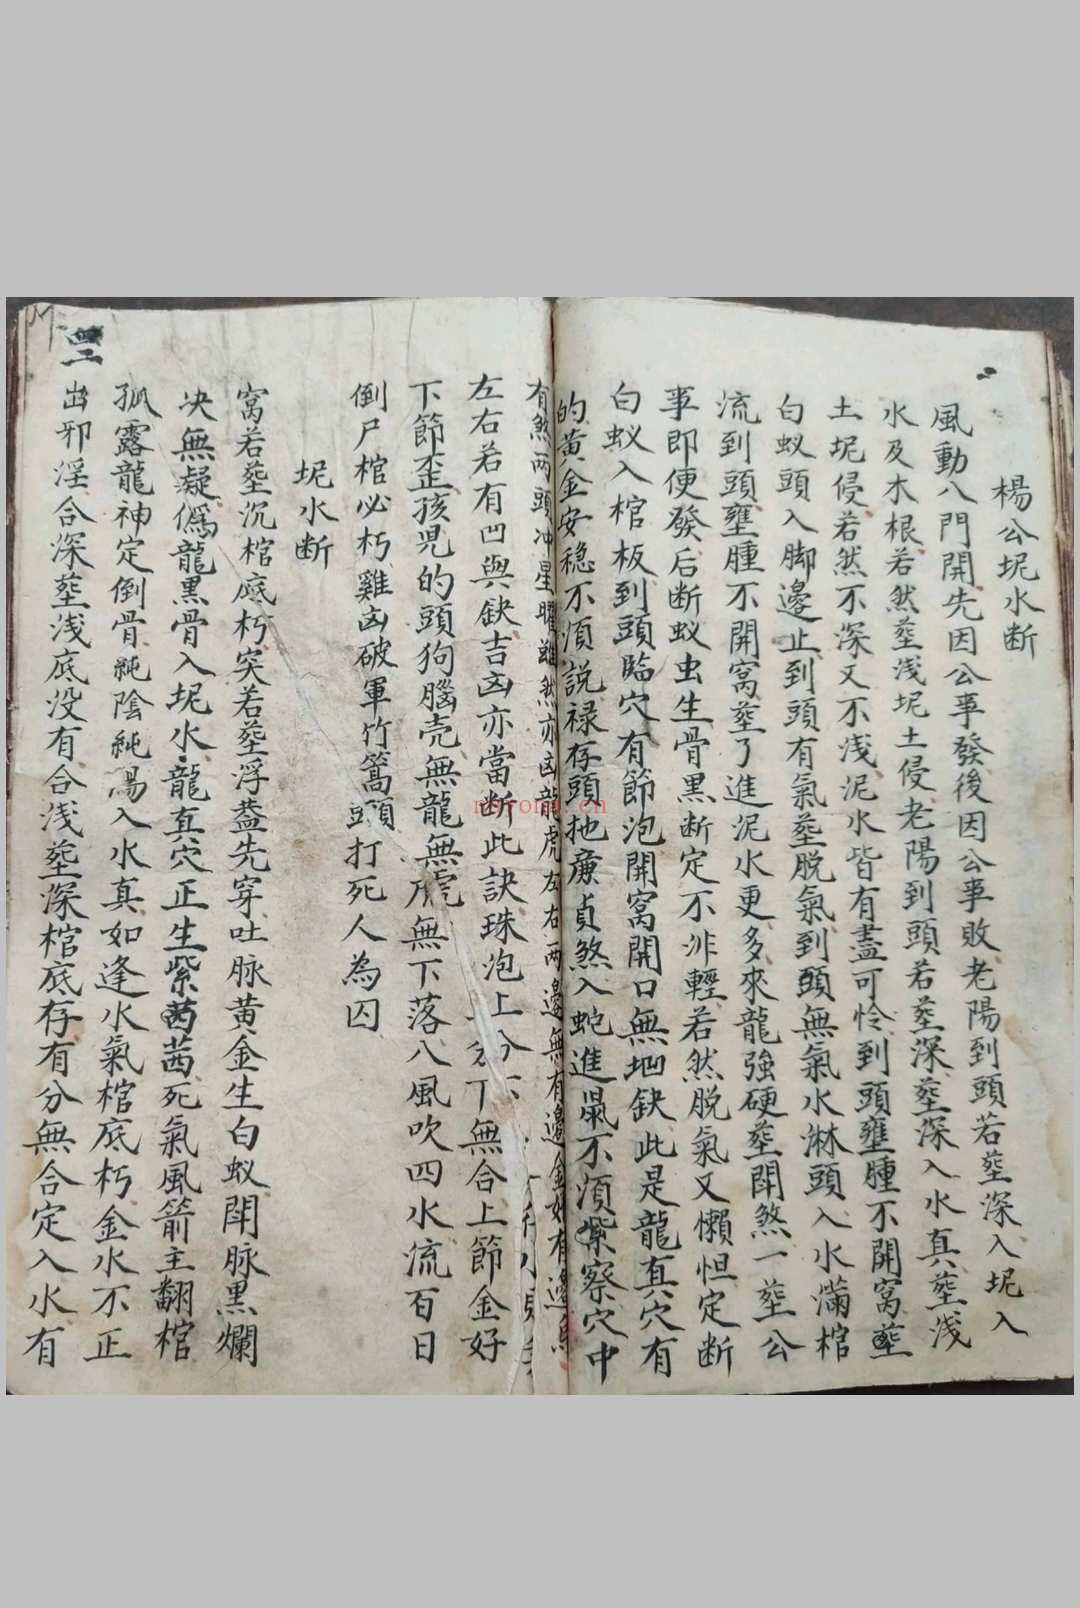 楊公坭水断
風動八門開先因公事發後因公事敗老陽到頭若塟深入坭入
水及木根若然塟浅坭土侵老陽到頭若塟深塟深入水真塟浅
土坭侵若然不深又不浅泥水皆有盡可怜到頭壅腫不開窩塟
白蚁頭入脚邊止到頭有氣塟脱氣到頭無氣水淋頭入水滿棺
流到頭壅腫不開窩塟了進泥水更多來龍強硬塟閗煞一塟公
事即便發后断蚁虫生骨黑断定不非輕若然脱氣又懶怛定断
白蚁入棺板到頭臨穴有節泡開窩開口無坳缺此是龍真穴有
的黄金安穏不湏説禄存頭扡亷貞煞入蛇進鼠不湏紫察穴中
有煞两頭冲星曜雖然亦凶龍虎左右两邊無有邊金好有邊
左右若有凹與缺吉凶亦當断此訣珠泡上分
下無合上節金好
下節歪孩児的頭狗腦壳無龍無虎無下落八風吹四水流百日
倒尸棺必朽雞凶破軍竹篙頭打死人為囚
坭水断
窩若塟沉棺底朽突若塟浮蓋先穿吐脉黄金生白蚁閗脉黒爛
决無凝僞龍黒骨入坭水龍真穴正生紫茜茜死氣風箭主翻棺
孤露龍神定倒骨純陰純陽入水真如逢水氣棺底朽金水不正
出邪淫合深塟浅底没有合浅塟深棺底存有分無合定入水有
nbyona.cn